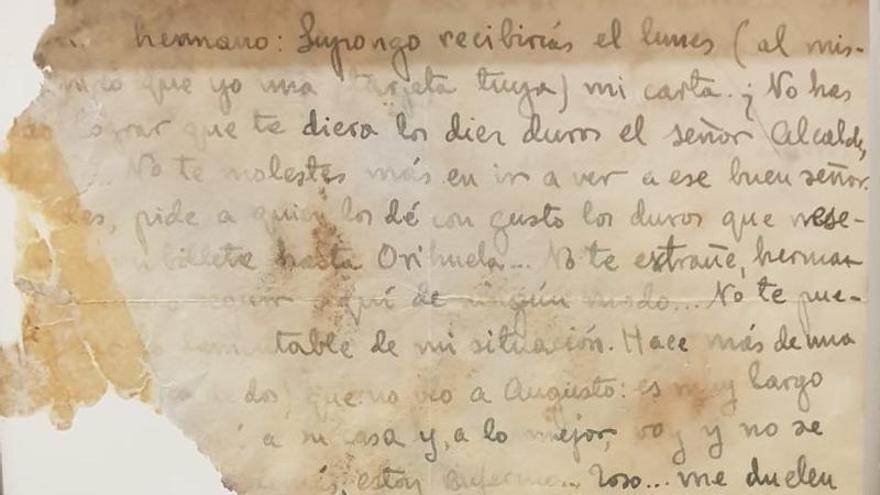 hermano: Supongo recibirías el lunes (al mis-
que yo una tarjeta tuya) mi carta. ¿No has
lograr que te diera los diez duros el señor Alcalde,
No te molestes más en ir a ver a ese buen señor.
pide a quien los dé con gusto los duros que nece-
billete hasta Orihuela... No te estrañe, herman
seguir aquí de ningún modo... No te pue-
lamentable de mi situación. Hace más de una
de dos) que no veo a Augusto: es muy largo
a su casa y, a lo mejor, voy y no se
estoy enfermo... Toso... me duelen